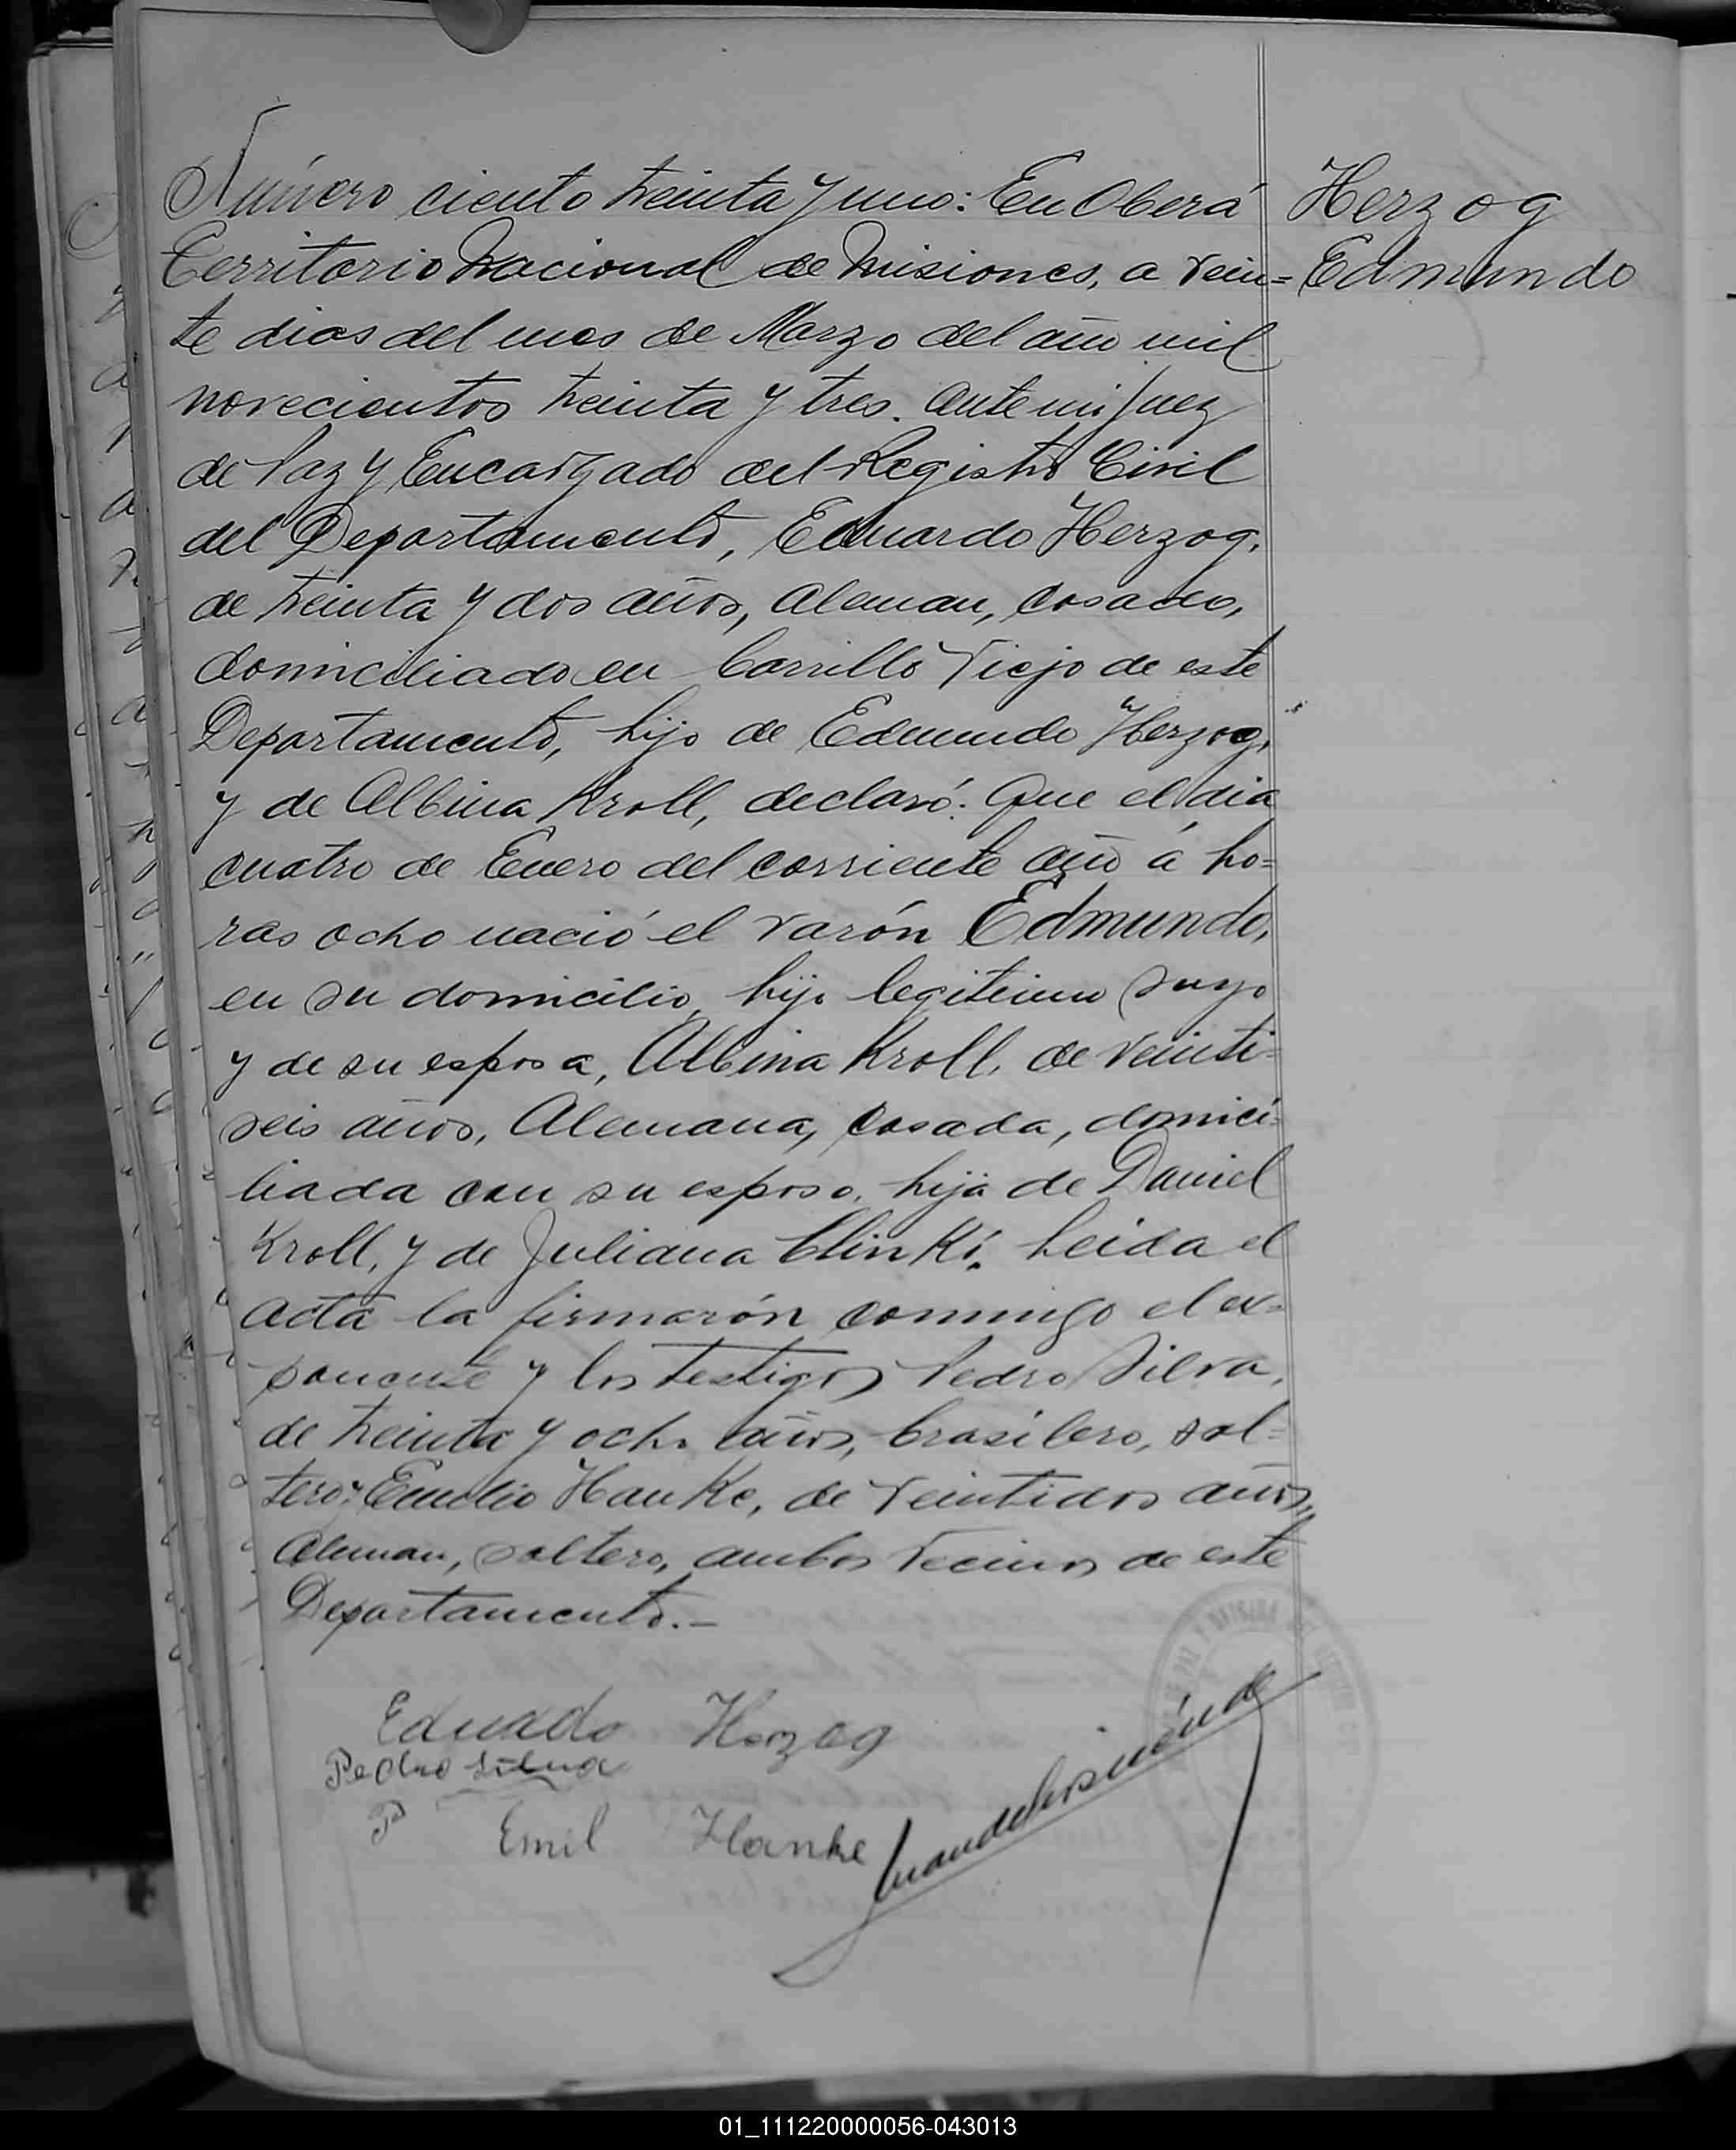 Número ciento treinta y uno: En Oberá
Territorio Nacional de Misiones, a vein=
te dias del mes de Marzo del año mil
novecientos treinta y tres. ante mi Juez
de Paz y Encargado del Registro Civil
del Departamento, Eduardo Herzog,
de treinta y dos años, Aleman, casado,
domiciliado en Carrillo Viejo de este
Departamento, hijo de Edmundo Herzog,
y de Albina Kroll, declaró: Que el dia
cuatro de Enero del corriente año á ho=
ras ocho nació el varón Edmundo,
en su domicilio, hijo legitimo suyo
y de su esposa, Albina Kroll, de veinti=
seis años, Alemana, casada, domici=
liada con su esposo, hija de Daniel
Kroll, y de Juliana Clinki. Leida el
acta la firmarón conmigo el ex=
ponente y los testigos Pedro Silva,
de treinta y ocho años, brasilero, sol=
tero; Emilio Hanke, de veintidos años,
Aleman, soltero, ambos vecinos de este
Departamento.-
Herzog
Edmundo
Eduado Herzog
Pedro Silva
P
Emil Hanke
01_111220000056-043013